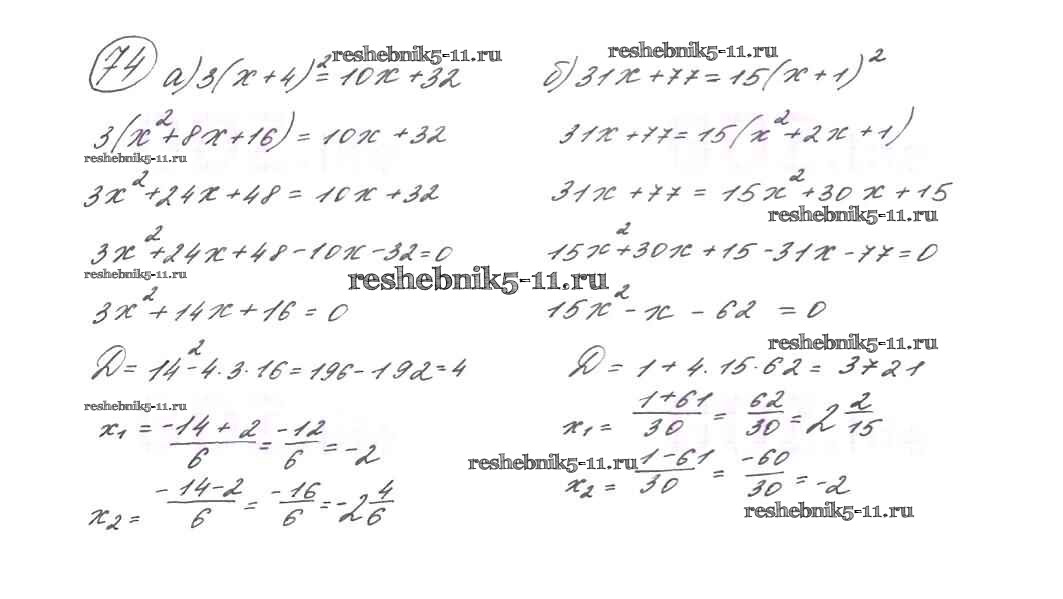 74 а) 3(x+4)² = 10x+32
reshebnik5-11.ru
3(x²+8x+16) = 10x+32
reshebnik5-11.ru
3x²+24x+48 = 10x+32
3x²+24x+48-10x-32=0
reshebnik5-11.ru
3x²+14x+16=0
D=14²-4·3·16=196-192=4
reshebnik5-11.ru
x₁ = (-14+2)/6 = -12/6 = -2
x₂ = (-14-2)/6 = -16/6 = -2 4/6
reshebnik5-11.ru
reshebnik5-11.ru
б) 31x+77=15(x+1)²
31x+77=15(x²+2x+1)
31x+77 = 15x²+30x+15
reshebnik5-11.ru
15x²+30x+15-31x-77=0
15x²-x-62=0
reshebnik5-11.ru
D=1+4.15·62=3721
x₁ = (1+61)/30 = 62/30 = 2 2/15
reshebnik5-11.ru
x₂ = (1-61)/30 = -60/30 = -2
reshebnik5-11.ru